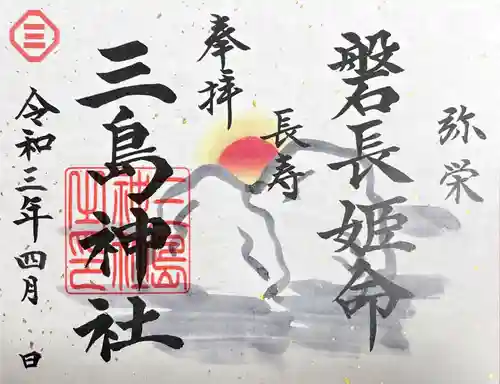 弥栄
磐長姫命
長寿
奉拝
三島神社
令和三年四月 日
三